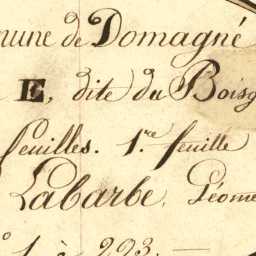 mune de Domagné
E, dite du Boisg
feuilles. 1.re feuille
Labarbe, Géome
1 à 223.